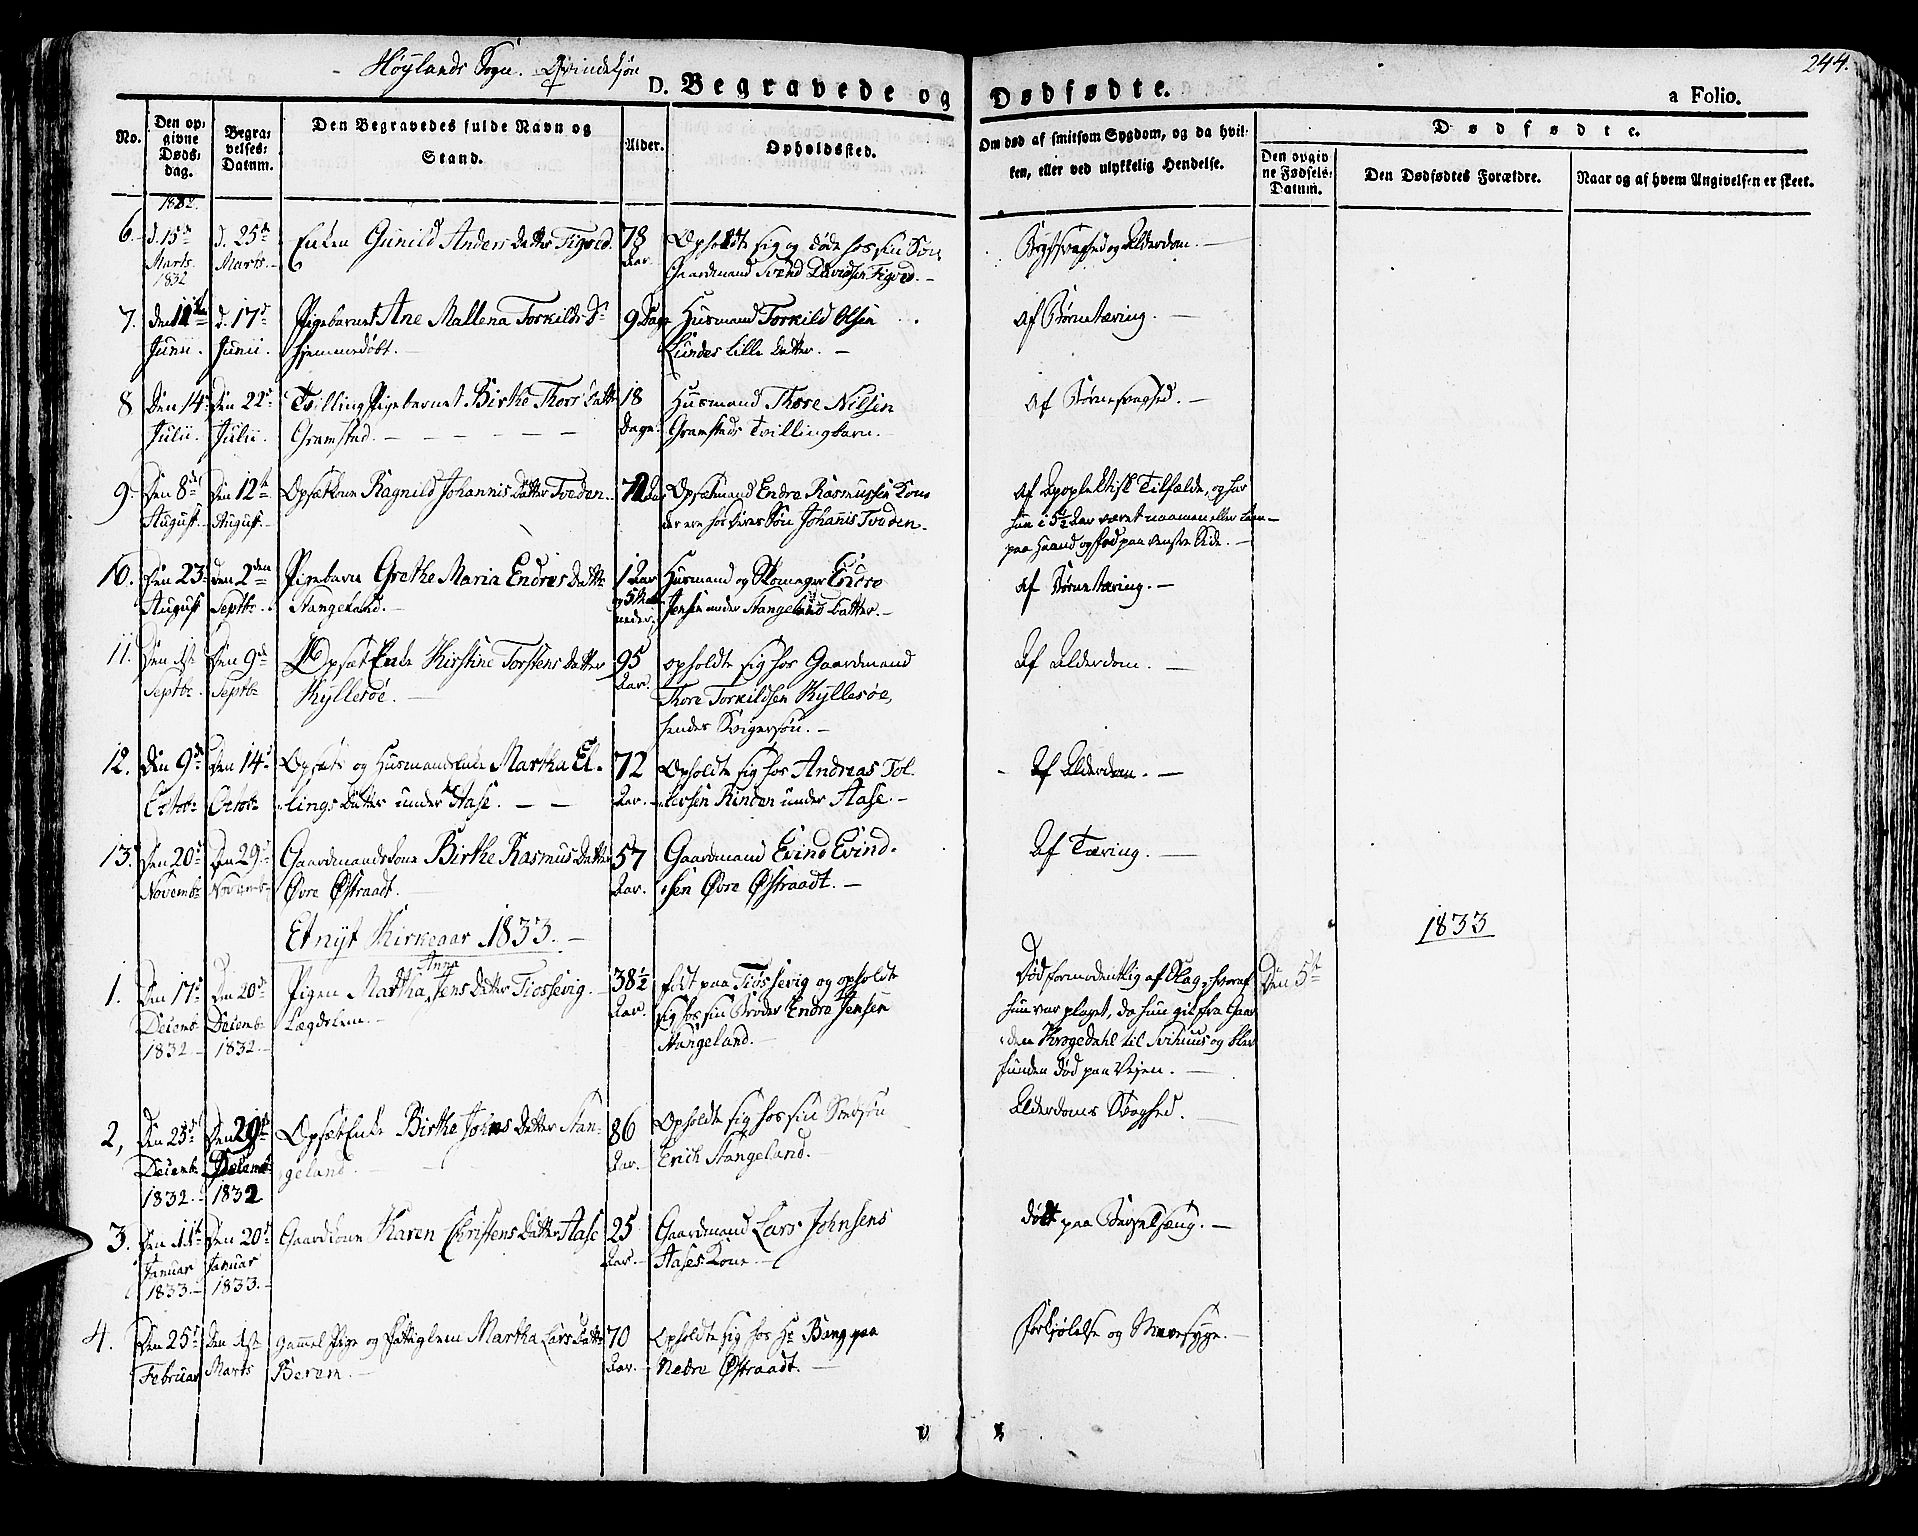 Höylands Sogn. Qvindekjøn
244.
D. Begravede og Dødfødte.
a Folio.
No.
Den opgivne Dødsdag.
Begravelses-Datum.
Den Begravedes fulde Navn og Stand.
Alder.
Opholdssted.
Om død af smitsom Sygdom, og da hvilken, eller ved ulykkelig Hendelse.
Dødfødte.
Den opgivne Fødsels-Datum.
Den Dødfødtes Forældre.
Naar og af hvem Angivelsen er skeet.
1832.
6. d. 15de Marts 1832 d. 25de Marts. Enken Gunild Anders Datter Figved. 78 Aar. Opholdte sig og døde hos sin Søn
Gaardmand Svend Davidsen Figved. –
Brystsvaghed og Alderdom. –
7. den 11te Junii. d. 17de Junii. Pigebarnet Ane Mallena Torkilds Dr
hjemmedøbt. –
9 Dage Husmand Torkild Olsen
Lundes lille Datter. –
af Børnetæring. –
8 Den 14de Julii. Den 22de Julii. Tvilling Pigebarnet Birthe Thors Datter
Gramstad. –
18 Dage. Husmand Thore Nilsen
Gramstads Tvillingbarn. –
Af Børnesvaghed. –
9. Den 8de August. Den 12te August. Opsætkone Ragnild Johannis Datter Tveden.
Opsætmand Endre Rasmussen Kone
der ere hos deres Søn Johanis Tveden. –
Af Apoplektisk Tilfælde, og har
hun i 5½ Aar været
paa Haand og Fod paa venstre Side. –
10. Den 23de August Den 2den Septbr. Pigebarn Grethe Maria Endres Datter
Stangeland. –
1 Aar og 5 Maaneder. Husmand og Skomager Endre
Jensen under Stangeland Datter. –
af Børnetæring. –
11. Den 1ste Septbr. Den 9de Septbr Opsæt Enke Kirstine Torstens Datter
Kyllesøe. –
95 Aar. opholdte sig hos Gaardmand
Thore Torkildsen Kyllesøe,
hendes Svigersøn. –
Af Alderdom. –
12. Den 9de Octobr Den 14de Octobr Opsæt og Husmandsenke Martha El-
lings Datter under Aase. – –
72 Aar. – Opholdte sig hos Andreas Tol-
lersen Rinden under Aase. –
Af Alderdom. –
13. Den 20de Novembr Den 29de Novembr Gaardmandskone Birthe Rasmus Datter
Øvre Østraadt. –
57 Aar. Gaardmand Evind Evind-
sen Øvre Østraadt. –
Af Tæring. –
Et nyt Kirkeaar 1833. –
1833
1. Den 17de Decembr 1832. – Den 20de Decembr 1832. – Pigen Martha Anna Jens Datter Tiossevig. –
Lægdslem. –
38½ Aar. født paa Tiossevig og opholdte
sig hos sin Broder Endre Jensen
Stangeland. –
Død formodentlig af Slag, hvoraf
hun var plaget, da hun gik fra Gaar-
den Krogedahl til Svihuus og blev
funden død paa Vejen. –
Den 5te
2, Den 25de Decembr 1832. – Den 29de Decembr 1832 Opsæt Enke Birthe Johns Datter Stan-
geland. –
86 Aar. Opholdte sig hos sin Stedsøn
Erich Stangeland. –
Alderdoms Svaghed. –
3. Den 11te Januar 1833. – Den 20de Januar 1833. – Gaardkone Karen Christens Datter Aase
25 Aar. – Gaardmand Lars Johnsens
Aases Kone. –
død paa Barselseng. –
4. Den 25de Februar Den 1ste Marts Gammel Pige og Fattiglem Martha Lars Datter
Berem. –
70 Aar. – Opholdte sig hos Hr Bang paa
Nedre Østraadt. –
Forkjølelse og Mavesyge. –